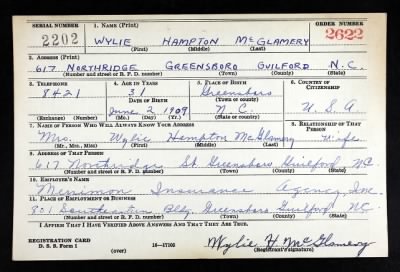 SERIAL NUMBER 1. NAME (Print) ORDER NUMBER
2202 WYLIE HAMPTON McGLAMERY 2622
(First) (Middle) (Last)
2. ADDRESS (Print)
617 NORTHRIDGE GREENSBORO GUILFORD N.C.
(Number and street or R. F. D. number) (Town) (County) (State)
3. TELEPHONE 4. AGE IN YEARS 5. PLACE OF BIRTH 6. COUNTRY OF CITIZENSHIP
8421 31 Greensboro
DATE OF BIRTH (Town or county)
June 2 1909 N.C. U.S.A
(Exchange) (Number) (Mo.) (Day) (Yr.) (State or country)
7. NAME OF PERSON WHO WILL ALWAYS KNOW YOUR ADDRESS 8. RELATIONSHIP OF THAT PERSON
Mrs. Wylie Hampton McGlamery Wife
(Mr., Mrs., Miss) (First) (Middle) (Last)
9. ADDRESS OF THAT PERSON
617 Northridge St. Greensboro Guilford NC
(Number and street or R. F. D. number) (Town) (County) (State)
10. EMPLOYER'S NAME
Merrimon Insurance Agency, Inc.
11. PLACE OF EMPLOYMENT OR BUSINESS
801 Southeastern Bldg. Greensboro Guilford NC.
(Number and street or R. F. D. number) (Town) (County) (State)
I AFFIRM THAT I HAVE VERIFIED ABOVE ANSWERS AND THAT THEY ARE TRUE.
REGISTRATION CARD
D. S. S. Form 1 (over) 16—17105 Wylie H. McGlamery
(Registrant's signature)